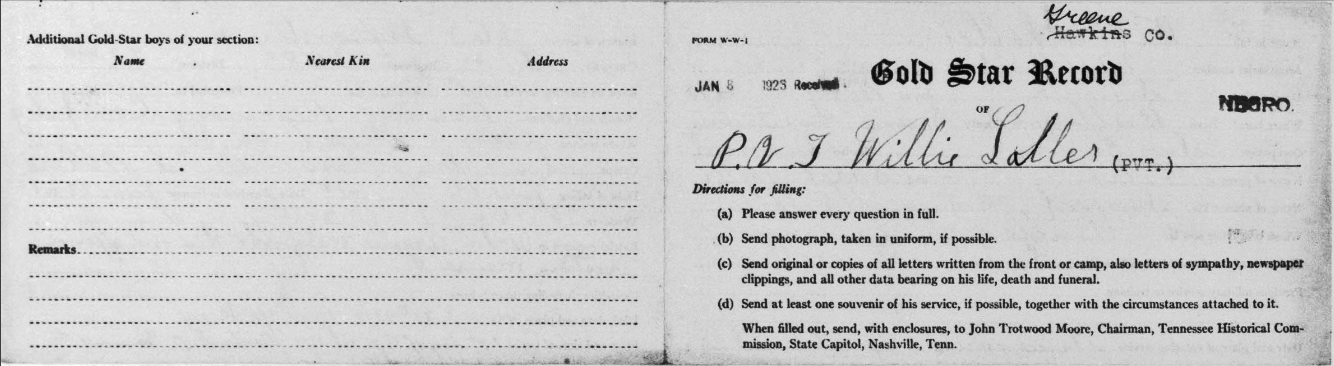 Additional Gold-Star boys of your section:
Name Nearest Kin Address
Remarks
Greene
Hawkins CO.
FORM W-W-1
Gold Star Record
JAN 8 1923 Received
NEGRO.
OF
P.V.T Willie Loller (PVT.)
Directions for filling:
(a) Please answer every question in full.
(b) Send photograph, taken in uniform, if possible.
(c) Send original or copies of all letters written from the front or camp, also letters of sympathy, newspaper
clippings, and all other data bearing on his life, death and funeral.
(d) Send at least one souvenir of his service, if possible, together with the circumstances attached to it.
When filled out, send, with enclosures, to John Trotwood Moore, Chairman, Tennessee Historical Com-
mission, State Capitol, Nashville, Tenn.